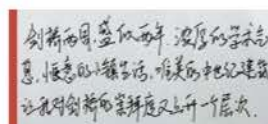 剑桥两周, 盛似两年. 浓厚的学术气
息, 惬意的小镇生活, 唯美的中世纪建筑
让我对剑桥的崇拜度又上升一个层次.